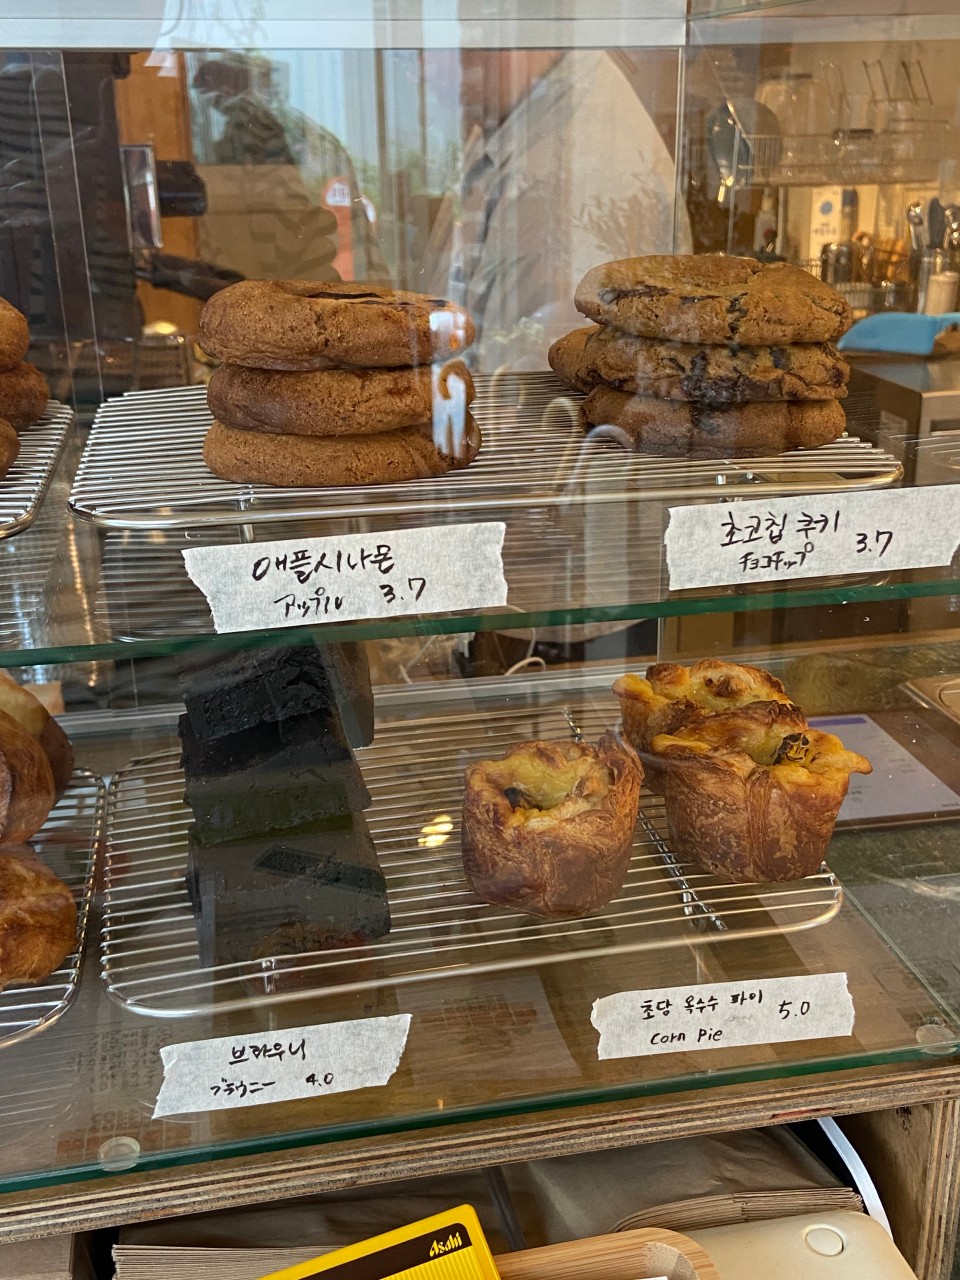 애플시나몬
アップル 3.7
초코칩 쿠키
チョコチップ 3.7
브라우니
ブラウニー 4.0
초당 옥수수 파이 5.0
Corn Pie
Asahi